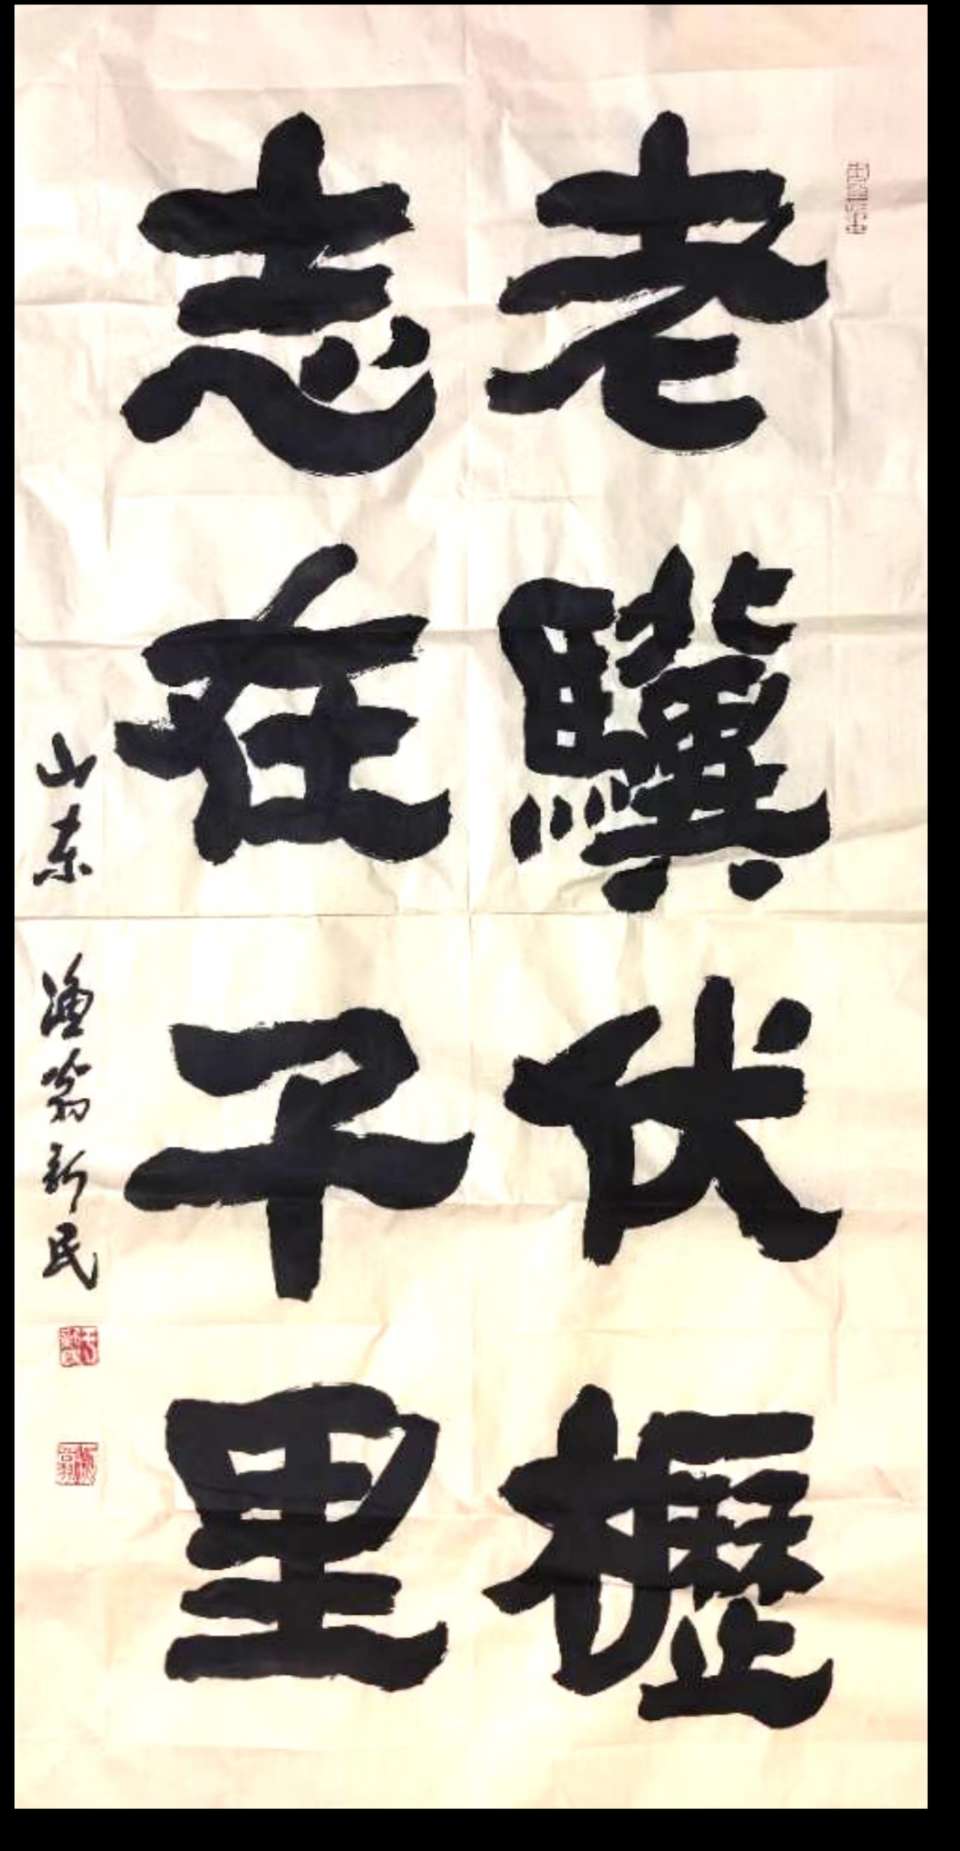 老驥伏櫪
志在千里
山东 渔翁新民